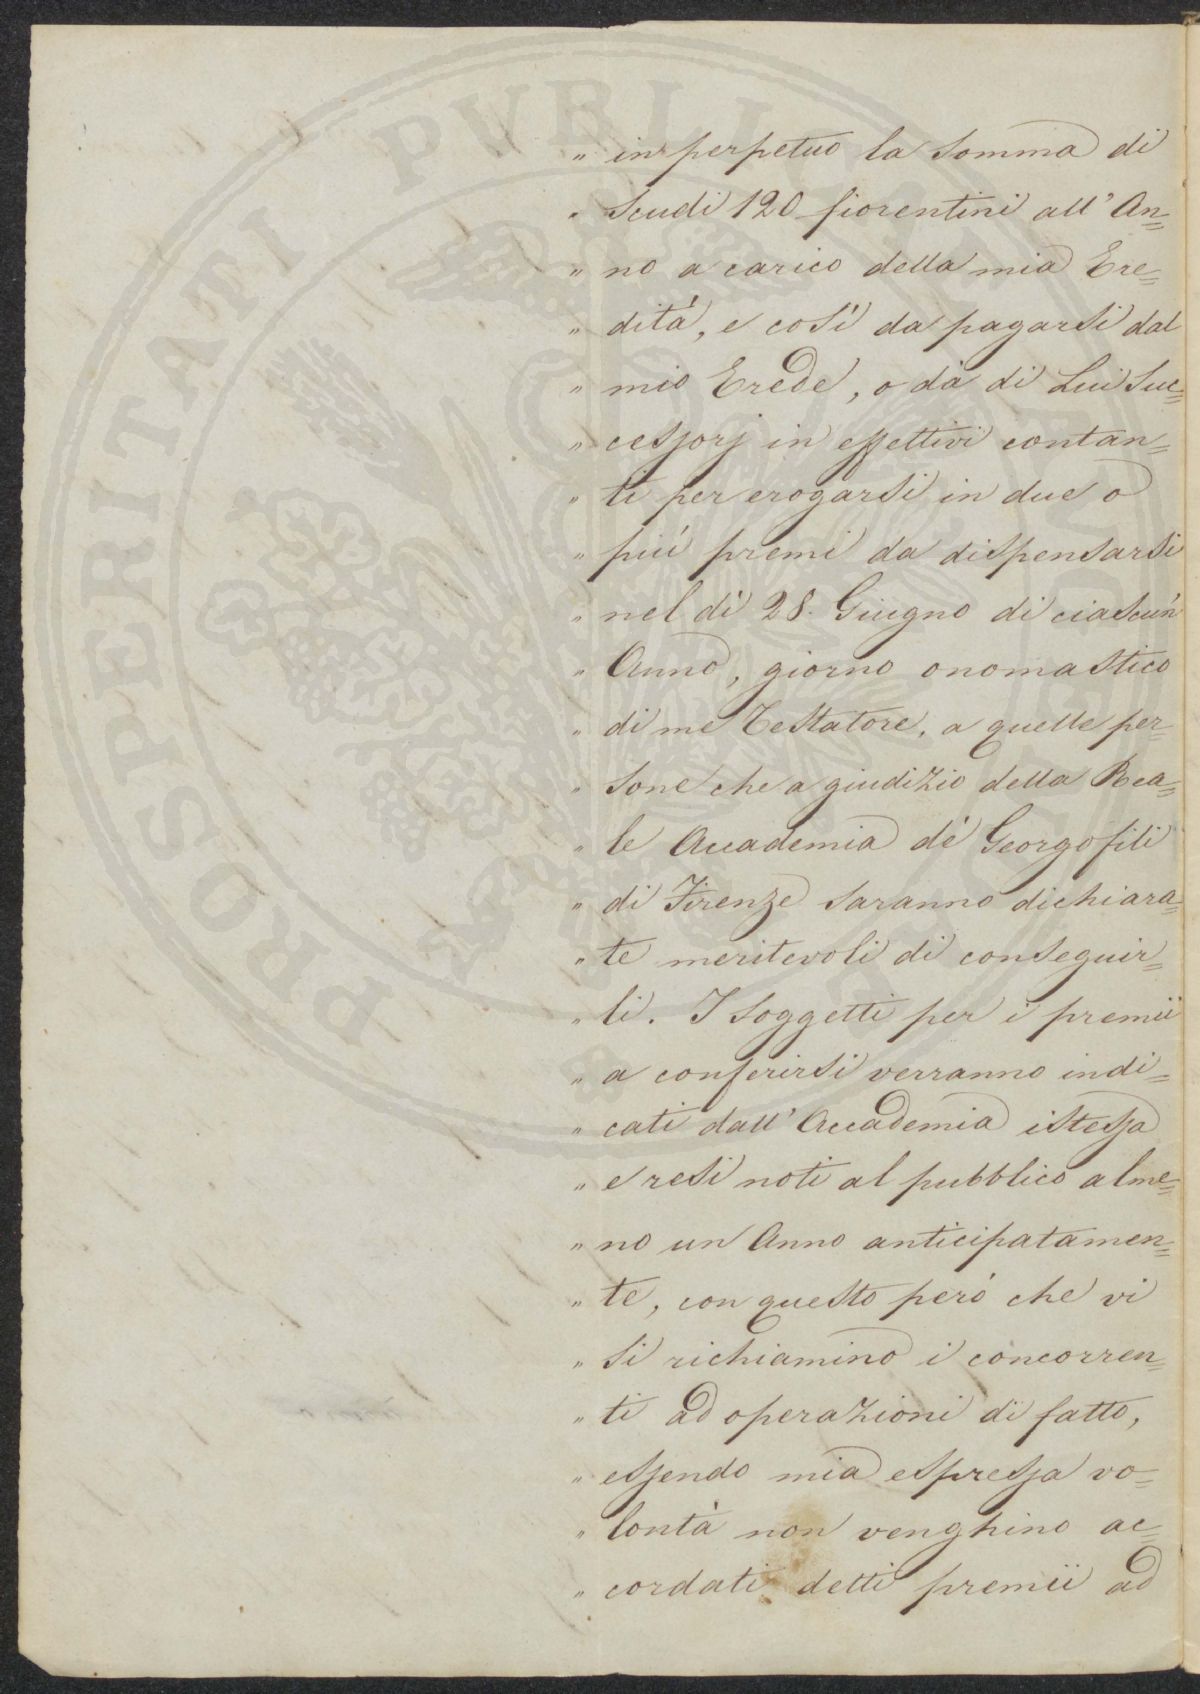 " in perpetuo la Somma di
" Scudi 120 fiorentini all' An=
" no a carico della mia Ere=
" dità, e così da pagarsi dal
" mio Erede, o da di Lui Suc=
" cessorj in effettivi contan=
" ti per erogarsi in due o
" più premi da dispensarsi
" nel dì 28. Giugno di ciascun
" Anno, giorno onomastico
" di me Testatore, a quelle per=
" sone che a giudizio della Rea=
" le Accademia dé Georgofili
" di Firenze saranno dichiara=
" te meritevoli di conseguir=
" li. I soggetti per i premii
" a conferirsi verranno indi=
" cati dall' Accademia istessa
" e resi noti al pubblico alme=
" no un Anno anticipatamen=
" te, con questo però che vi
" si richiamino i concorren=
" ti ad operazioni di fatto,
" essendo mia espressa vo=
" lontà non venghino ac=
" cordati detti premii ad
PROSPERITATI PVBLICAE AVGENDAE